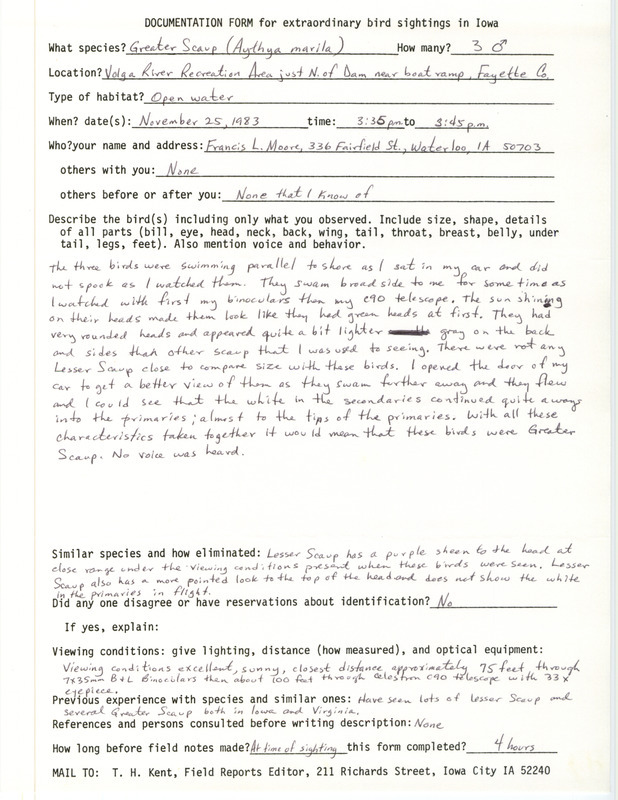 DOCUMENTATION FORM for extraordinary bird sightings in Iowa
What species? Greater Scaup (Aythya marila) How many? 3 ♂
Location? Volga River Recreation Area just N. of Dam near boat ramp, Fayette Co.
Type of habitat? Open water
When? date(s): November 25, 1983 time: 3:35 pm to 3:45 p.m.
Who? your name and address: Francis L. Moore, 336 Fairfield St., Waterloo, IA 50703
others with you: None
others before or after you: None that I know of
Describe the bird(s) including only what you observed. Include size, shape, details
of all parts (bill, eye, head, neck, back, wing, tail, throat, breast, belly, under
tail, legs, feet). Also mention voice and behavior.
The three birds were swimming parallel to shore as I sat in my car and did
not spook as I watched them. They swam broad side to me for some time as
I watched with first my binoculars then my c90 telescope. The sun shining
on their heads made them look like they had green heads at first. They had
very rounded heads and appeared quite a bit lighter gray on the back
and sides than other scaup that I was used to seeing. There were not any
Lesser Scaup close to compare size with these birds. I opened the door of my
car to get a better view of them as they swam further away and they flew
and I could see that the white in the secondaries continued quite a ways
into the primaries; almost to the tips of the primaries. With all these
characteristics taken together it would mean that these birds were Greater
Scaup. No voice was heard.
Similar species and how eliminated: Lesser Scaup has a purple sheen to the head at
close range under the viewing conditions present when these birds were seen. Lesser
Scaup also has a more pointed look to the top of the head and does not show the white
in the primaries in flight.
Did any one disagree or have reservations about identification? No
If yes, explain:
Viewing conditions: give lighting, distance (how measured), and optical equipment:
Viewing conditions excellent, sunny, closest distance approximately 75 feet, through
7x35mm B+L Binoculars then about 100 feet through Celestron C90 telescope with 33x
eyepiece.
Previous experience with species and similar ones: Have seen lots of Lesser Scaup and
several Greater Scaup both in Iowa and Virginia.
References and persons consulted before writing description: None
How long before field notes made? At time of sighting this form completed? 4 hours
MAIL TO: T. H. Kent, Field Reports Editor, 211 Richards Street, Iowa City IA 52240